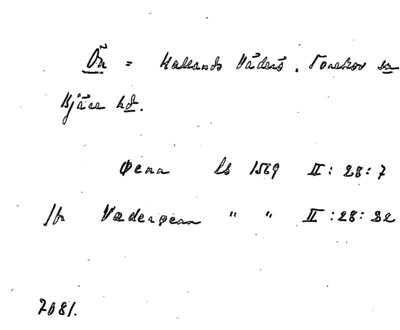 Ön = Hallands Väderö, Torekov sn
Bjäre hd.
Øenn Ls 1569 II:28:7
Jfr Vederøenn " " II:28:32
7081.